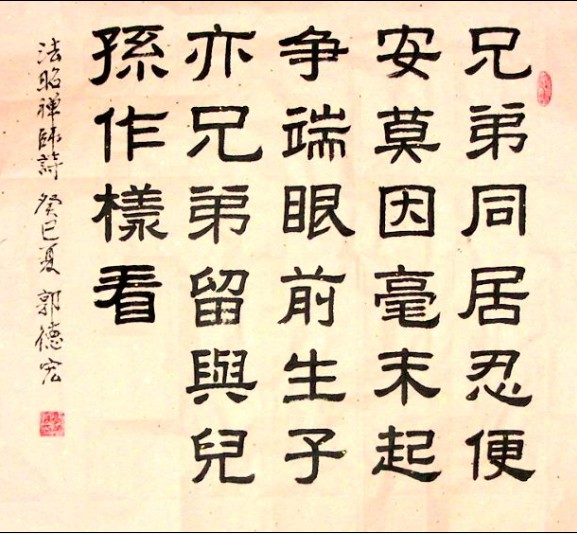 兄弟同居忍便
安莫因毫末起
争端眼前生子
亦兄弟留與兒
孫作樣看
法昭禪師詩 癸巳夏 郭德宏